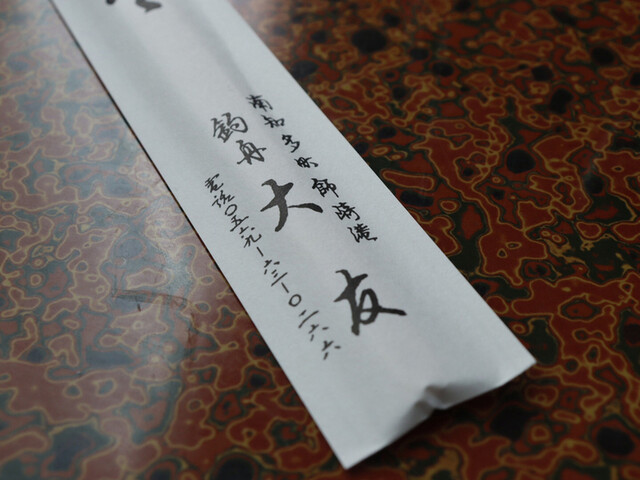 南知多町師崎港
釣舟
大友
電話〇五六九ー六三ー〇二六六